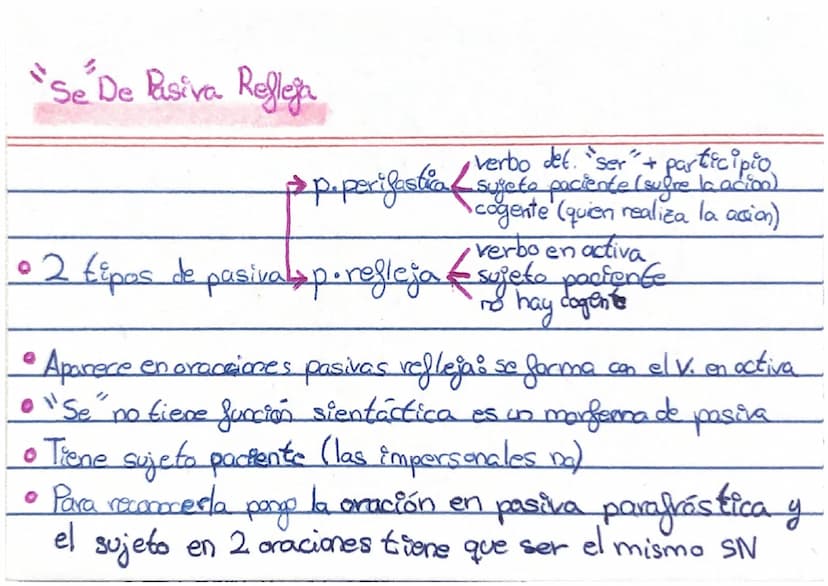 "Se" De Pasiva Refleja
verbo def. "ser" + participio
p. perifastica sujeto paciente (sufre la acion)
cogente (quien realiza la acion)
verbo en activa
• 2 tipos de pasiva p. refleja sujeto paciente
no hay cogente
• Aparece en oracciones pasivas reflejas se forma con el V. en activa
• "Se" no tiene función sientáctica es un morfema de pasiva
• Tiene sujeto paciente (las impersonales no)
• Para reconocerla pongo la oración en pasiva parafróstica y
el sujeto en 2 oraciones tiene que ser el mismo SN